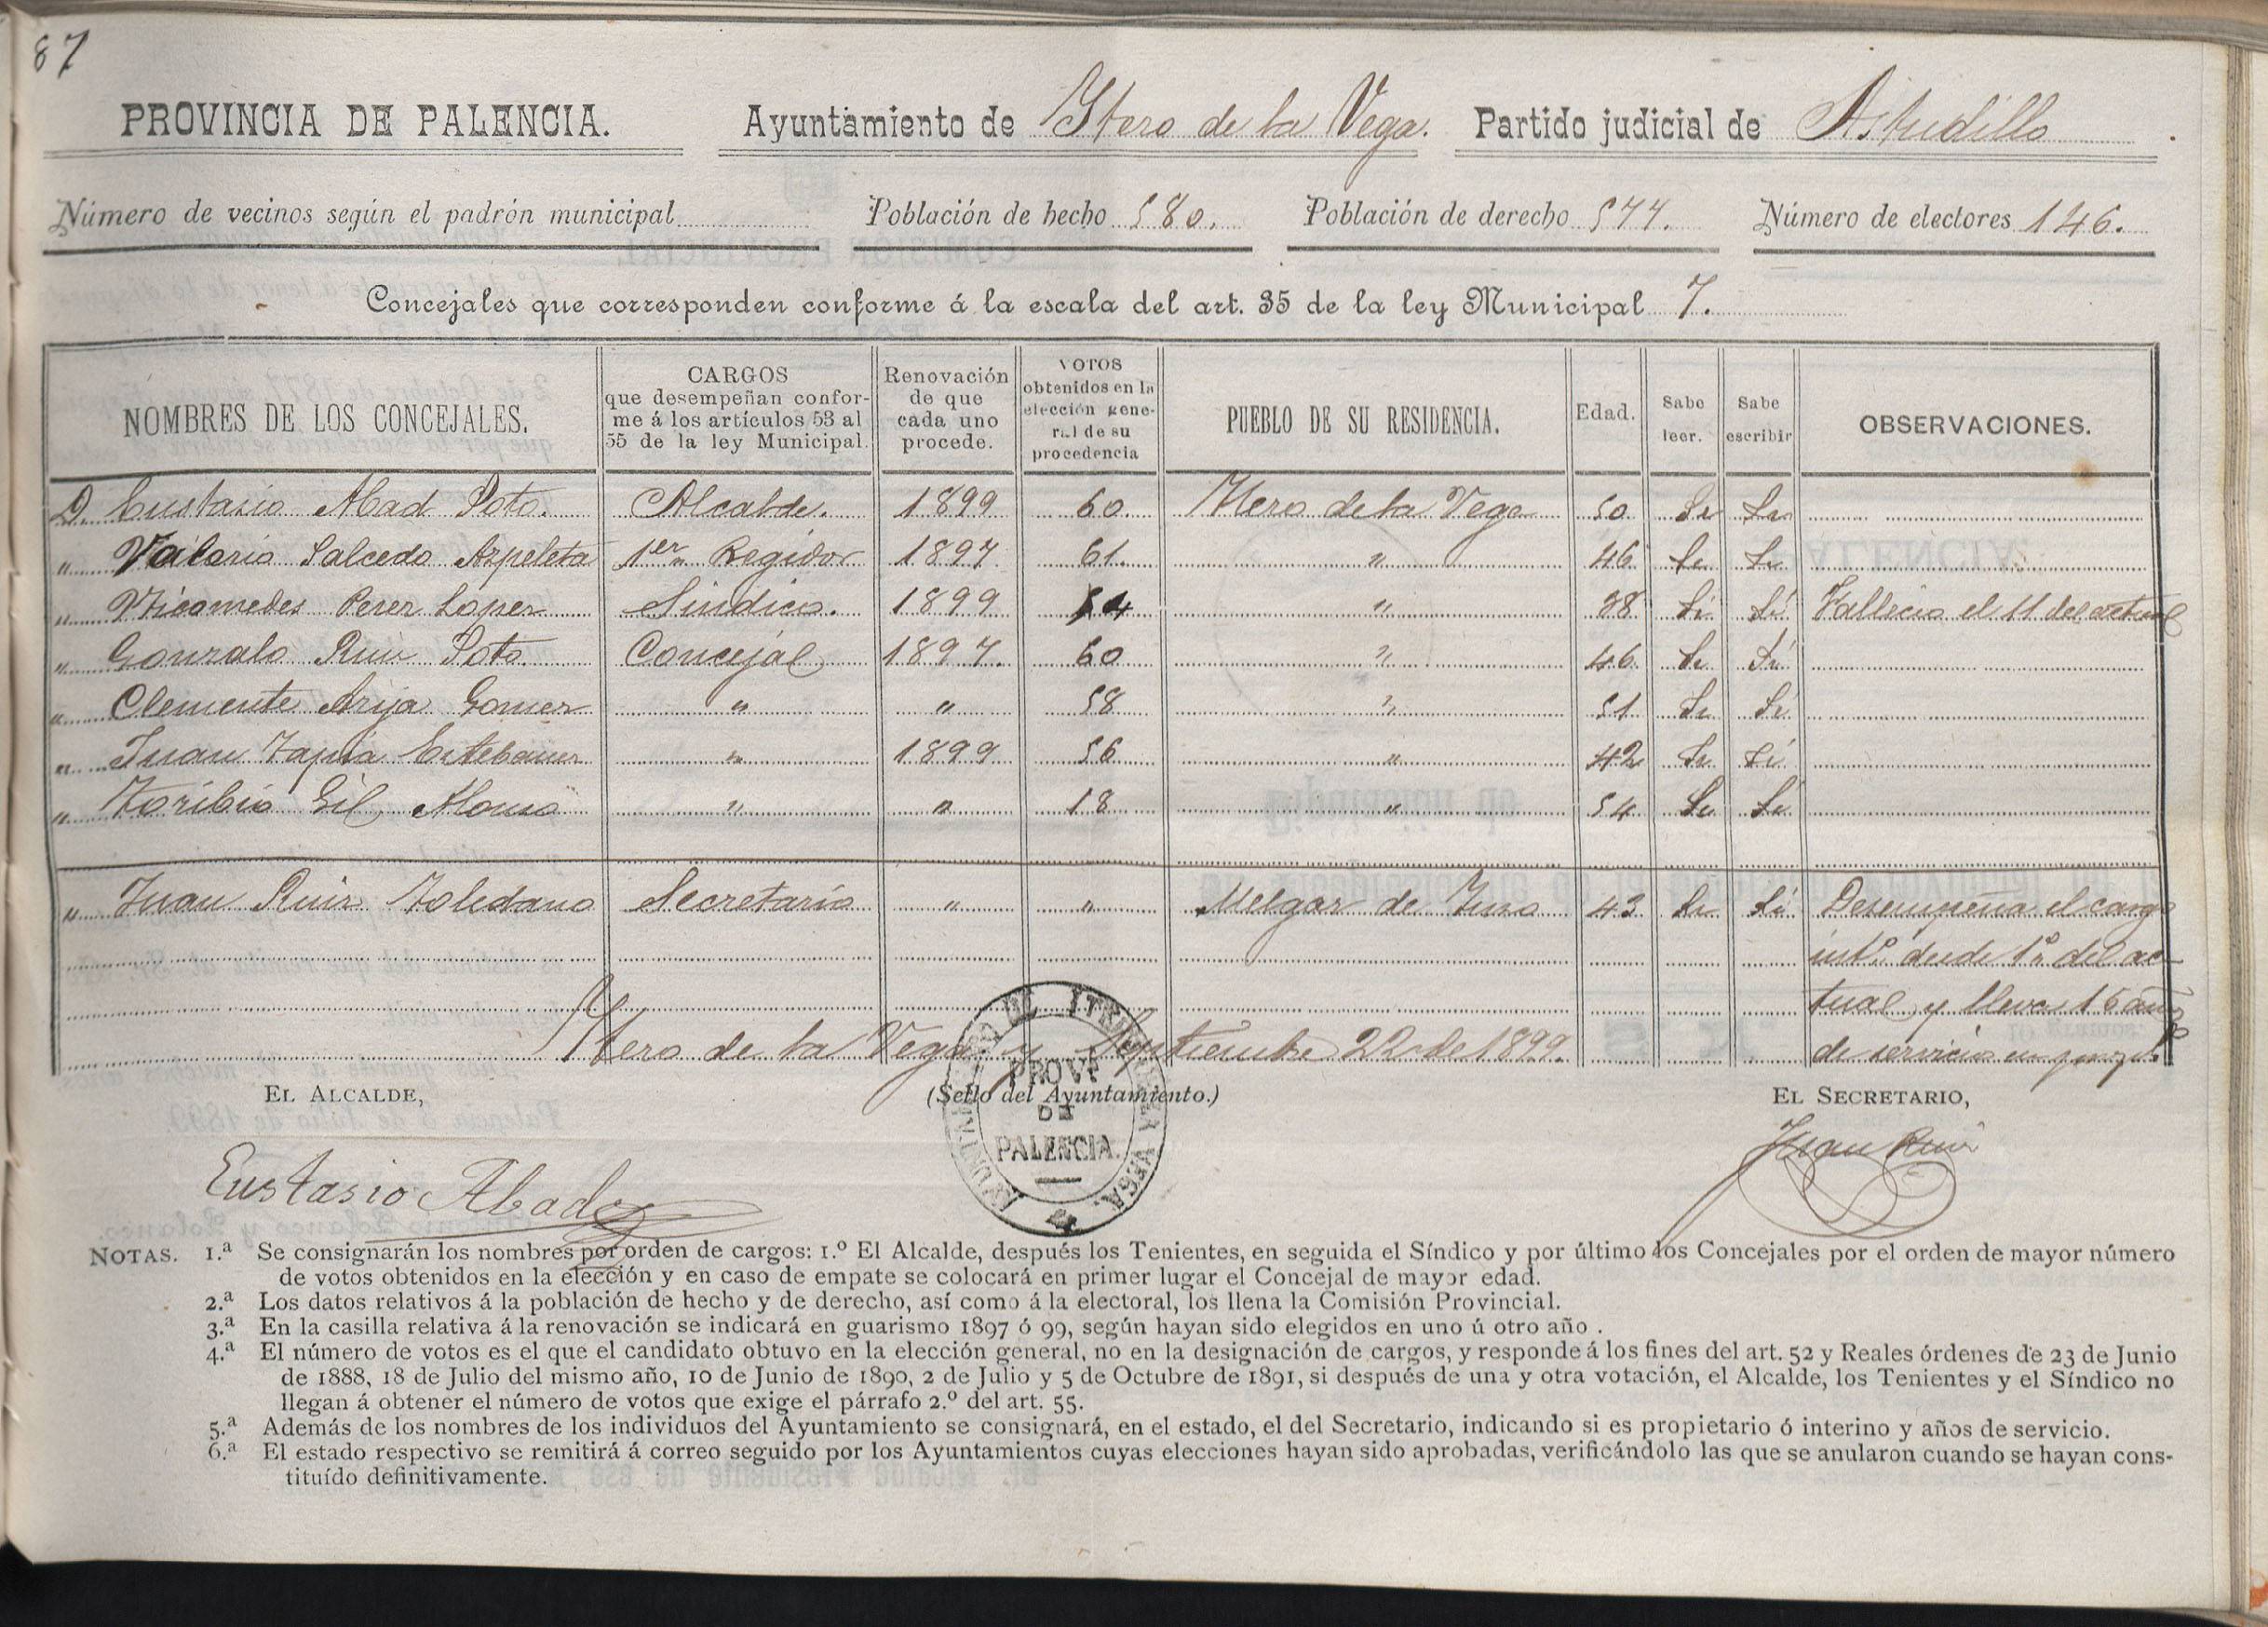 87
PROVINCIA DE PALENCIA. Ayuntamiento de Ytero de la Vega. Partido judicial de Astudillo
Número de vecinos según el padrón municipal Población de hecho 580. Población de derecho 577. Número de electores 146.
Concejales que corresponden conforme á la escala del art. 35 de la ley Municipal 7.
NOMBRES DE LOS CONCEJALES. CARGOS que desempeñan conforme á los artículos 53 al 55 de la ley Municipal. Renovación de que cada uno procede. VOTOS obtenidos en la elección general de su procedencia PUEBLO DE SU RESIDENCIA. Edad. Sabe leer. Sabe escribir OBSERVACIONES.
D. Eustasio Abad Poto. Alcalde. 1899 60 Ytero de la Vega 50 Si Si
" Valerio Salcedo Azpeleta 1er Regidor 1897 61. " 46 Si Si
" Nicomedes Perez Lopez Sindico. 1899 " 38 Si Si Fallecio el 11 del actual
" Gonzalo Ruiz Poto Concejal 1897. 60 " 46 Si Si
" Clemente Arija Gomez " " 58 " 51 Si Si
" Juan Tapia Estebanez " 1899 56 " 42 Si Si
" Toribio Gil Alonso " " 18 " 54 Si Si
" Juan Ruiz Toledano Secretario " " Melgar de Yuso 43 Si Si Desempeña el cargo
int.º desde 1.º del ac-
tual y lleva 16 años
de servicio en
Ytero de la Vega y Septiembre 22 de 1899.
EL ALCALDE, (Sello del Ayuntamiento.) EL SECRETARIO,
PROVª
DE
PALENCIA.
Eustasio Abad Juan Ruiz
NOTAS. 1.ª Se consignarán los nombres por orden de cargos: 1.º El Alcalde, después los Tenientes, en seguida el Síndico y por último los Concejales por el orden de mayor número
de votos obtenidos en la elección y en caso de empate se colocará en primer lugar el Concejal de mayor edad.
2.ª Los datos relativos á la población de hecho y de derecho, así como á la electoral, los llena la Comisión Provincial.
3.ª En la casilla relativa á la renovación se indicará en guarismo 1897 ó 99, según hayan sido elegidos en uno ú otro año.
4.ª El número de votos es el que el candidato obtuvo en la elección general, no en la designación de cargos, y responde á los fines del art. 52 y Reales órdenes de 23 de Junio
de 1888, 18 de Julio del mismo año, 10 de Junio de 1890, 2 de Julio y 5 de Octubre de 1891, si después de una y otra votación, el Alcalde, los Tenientes y el Síndico no
llegan á obtener el número de votos que exige el párrafo 2.º del art. 55.
5.ª Además de los nombres de los individuos del Ayuntamiento se consignará, en el estado, el del Secretario, indicando si es propietario ó interino y años de servicio.
6.ª El estado respectivo se remitirá á correo seguido por los Ayuntamientos cuyas elecciones hayan sido aprobadas, verificándolo las que se anularon cuando se hayan cons-
tituído definitivamente.